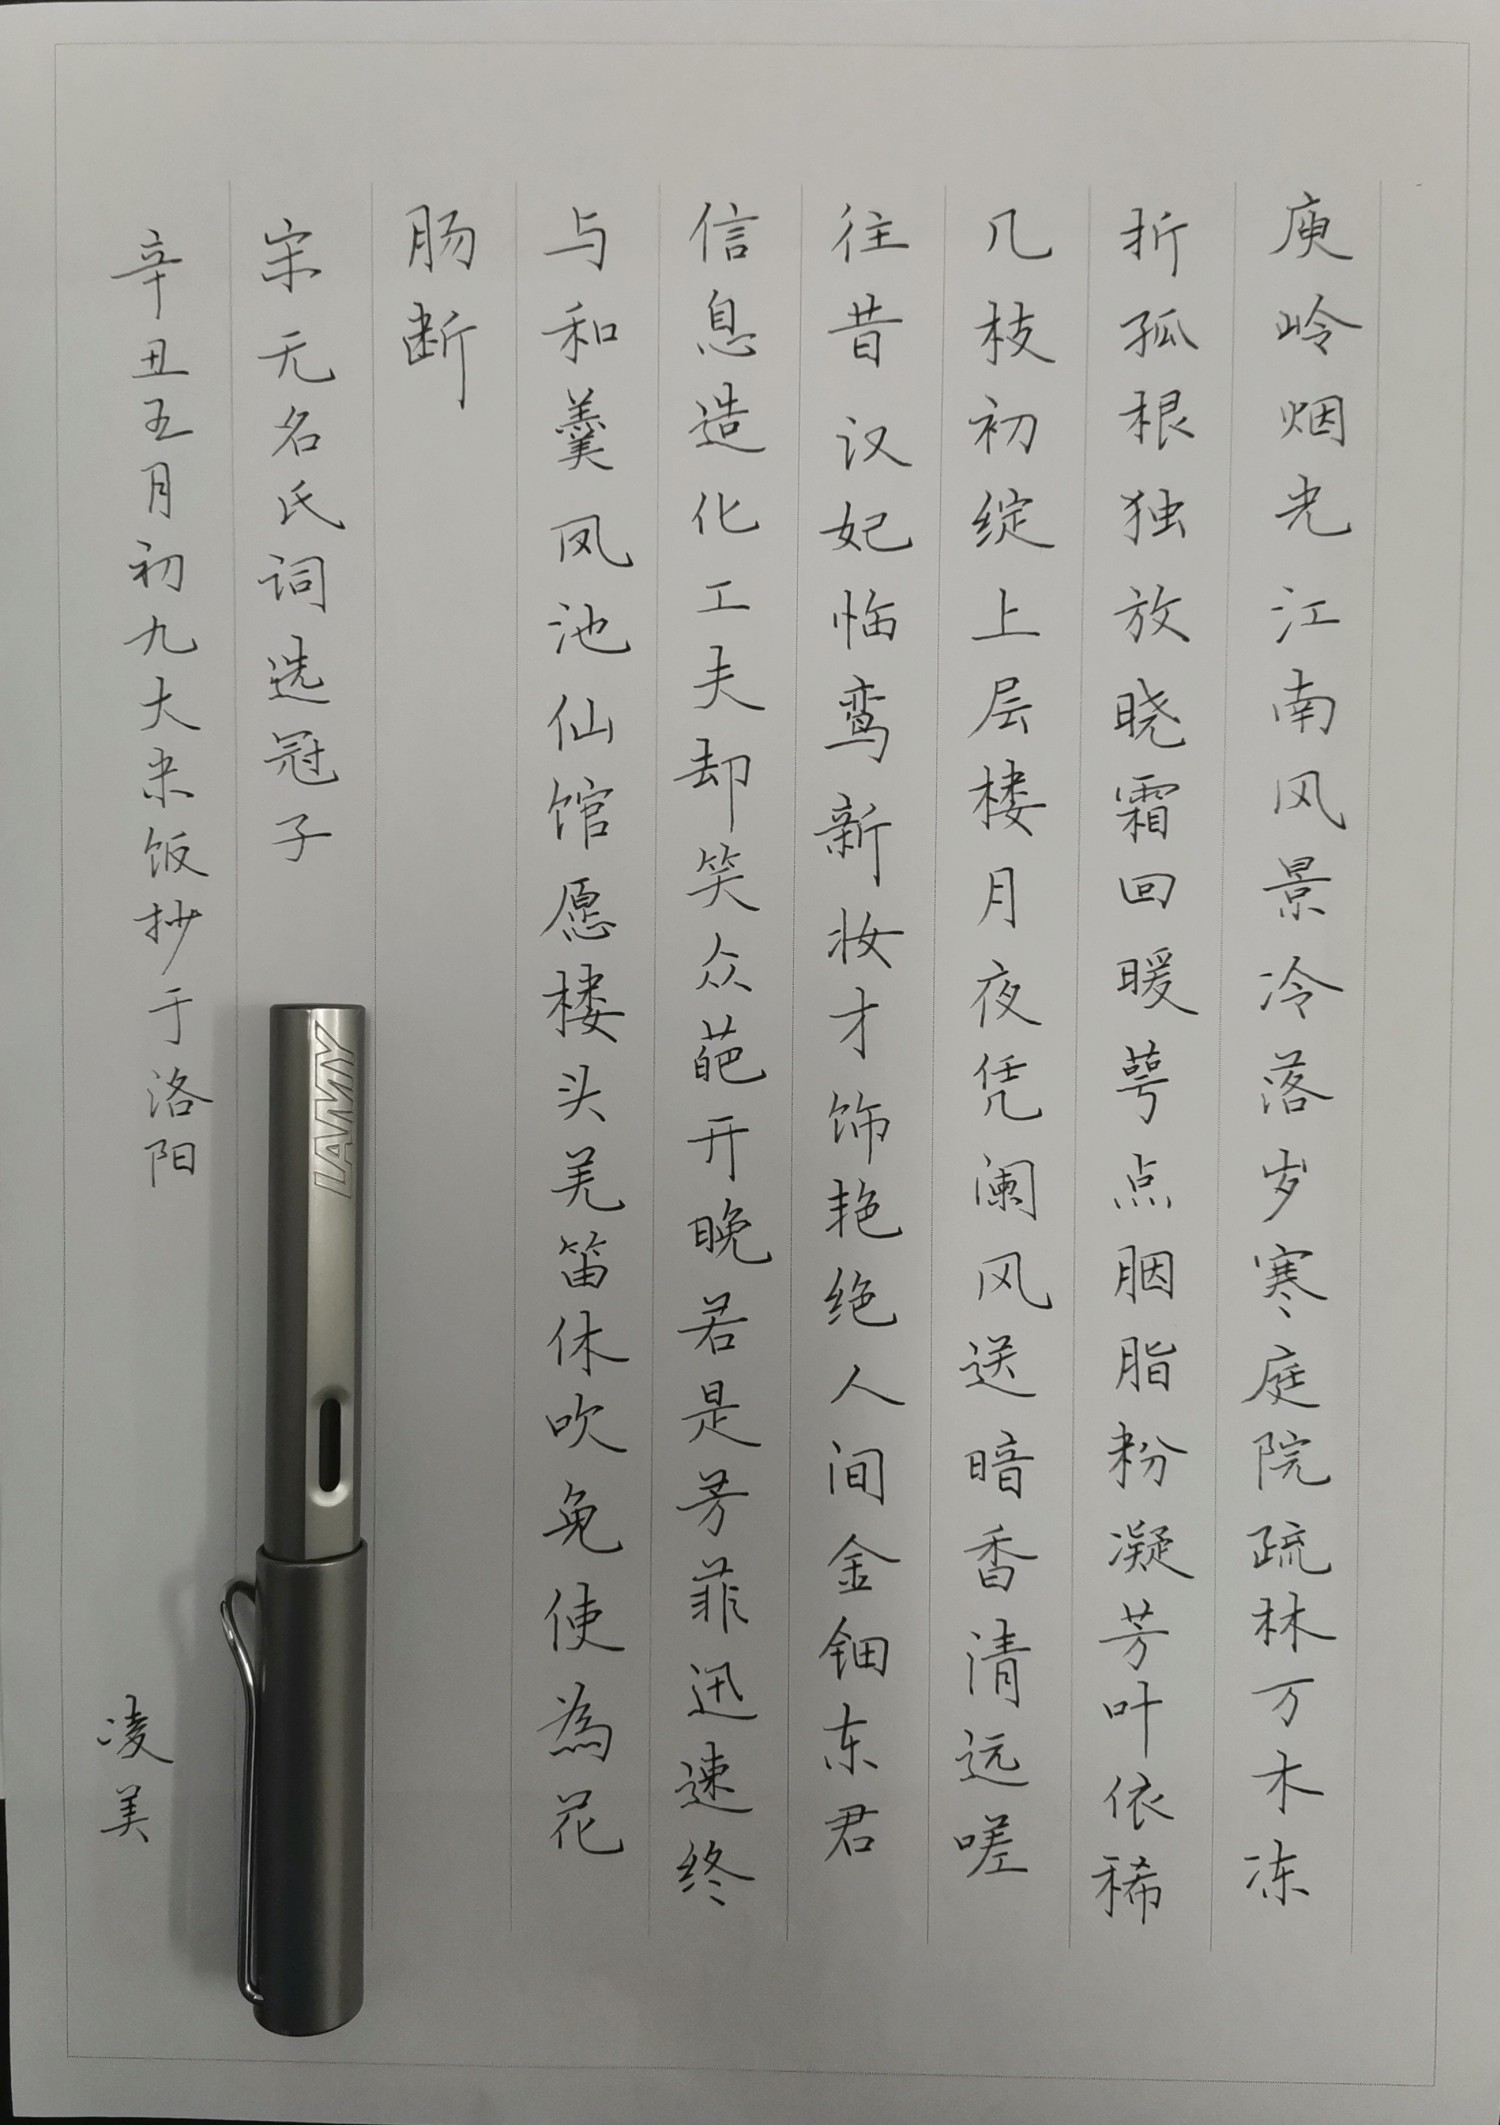 庾岭烟光江南风景冷落岁寒庭院疏林万木冻
折孤根独放晓霜回暖萼点胭脂粉凝芳叶依稀
几枝初绽上层楼月夜凭阑风送暗香清远嗟
往昔汉妃临鸾新妆才饰艳绝人间金钿东君
信息造化工夫却笑众葩开晚若是芳菲迅速终
与和羹凤池仙馆愿楼头羌笛休吹免使為花
肠断
宋无名氏词选冠子
辛丑五月初九大米饭抄于洛阳
凌美
LAMY